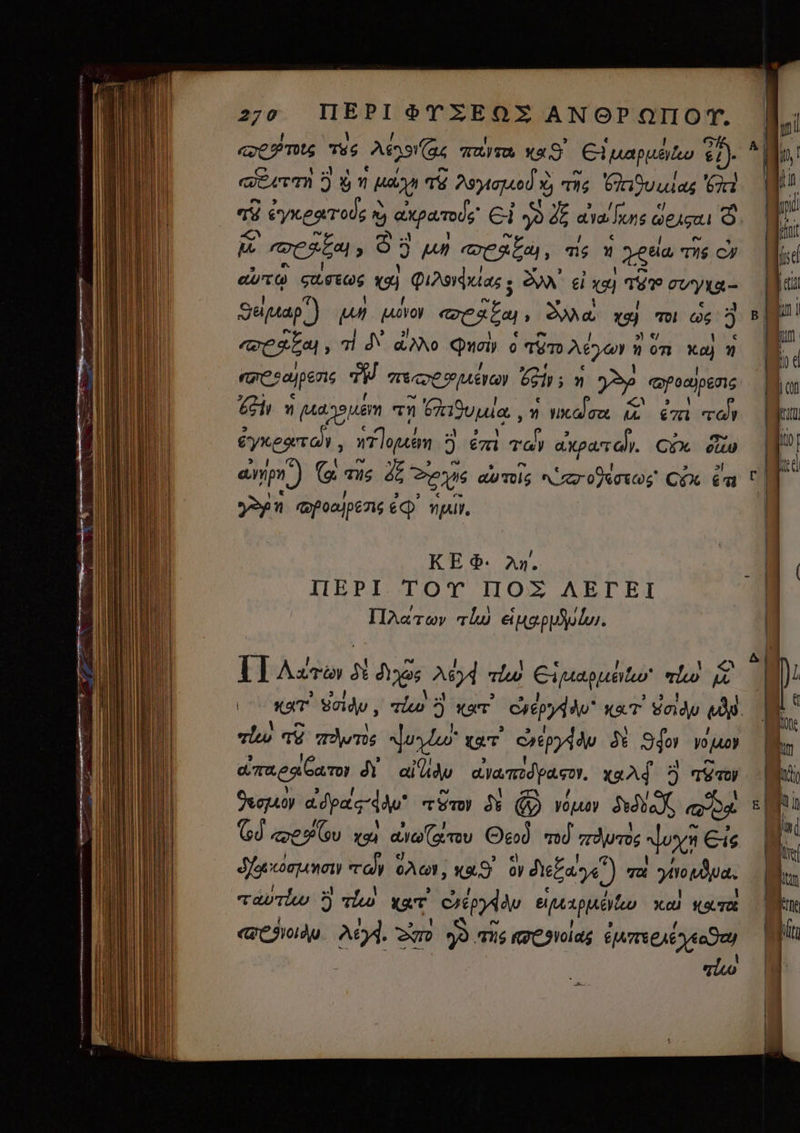 270 ΠΕΡΙ ΦΥΣΕΩΣ ΑΝΘΡΩΠΟΥ.
πρῶτοις τοὺς λέγοντας πάντα καθ' εἱμαρμένην εἶ).
περιττὴ δὲ καὶ ἡ μάχη τοῦ λογισμοῦ καὶ τῆς ἐπιθυμίας ἐπὶ
τοῦ ἐγκρατοῦς καὶ ἀκρατοῦς· εἰ γὰρ ἐξ ἀνάγκης ὥρισται τὸ
μὲν πρᾶξαι, τὸ δὲ μὴ πρᾶξαι, τίς ἡ χρεία τῆς ἐν
αὐτῷ στάσεως καὶ φιλονεικίας; ἀλλ' εἰ καὶ τοῦτο συγκα-
θείμαρ) μὴ μόνον πρᾶξαι, ἀλλὰ καὶ τοι ὡς δὲ
πρᾶξαι, τί δ' ἄλλο φησὶν ὁ τοῦτο λέγων ἢ ὅτι καὶ ἡ
προαίρεσις τῶν πεπρωμένων ἐστίν; ἡ γὰρ προαίρεσις
ἐστὶν ἡ μαχομένη τῇ ἐπιθυμίᾳ, ἡ νικῶσα μὲν ἐπὶ τῶν
ἐγκρατῶν, ἡττομένη δὲ ἐπὶ τῶν ἀκρατῶν. οὐκ οὖν
ἀνήρη) τὰ τῆς ἐξ ἀρχῆς αὐτοῖς ὑποθέσεως· οὐκ ἔτι
γὰρ ἡ προαίρεσις ἐφ' ἡμῖν.
ΚΕΦ. λη.
ΠΕΡΙ ΤΟΥ ΠΟΣ ΛΕΓΕΙ
Πλάτων τὴν εἱμαρμένην.
ΠΛάτων δὲ διχῶς λέγει τὴν εἱμαρμένην· τὴν μὲν
κατ' οὐσίαν, τὴν δὲ κατ' ἐνέργειαν· κατ' οὐσίαν μὲν
τὴν τοῦ παντὸς ψυχὴν· κατ' ἐνέργειαν δὲ θεῖον νόμον
ἀπαράβατον δι' αἰτίαν ἀναπόδραστον. καλεῖ δὲ τοῦτον
θεσμὸν ἀδράστειαν· τοῦτον δὲ τὸν νόμον δεδόσθαι παρὰ
τοῦ πρώτου καὶ ἀνωτάτου Θεοῦ τοῦ παντὸς ψυχῇ εἰς
διακόσμησιν τῶν ὅλων, καθ' ὃν διεξάγε) τὰ γινόμενα.
ταύτην δὲ τὴν κατ' ἐνέργειαν εἱμαρμένην καὶ κατὰ
πρόνοιαν λέγει. ἀπὸ γὰρ τῆς προνοίας ἐμπεριέχεσθαι
τὴν